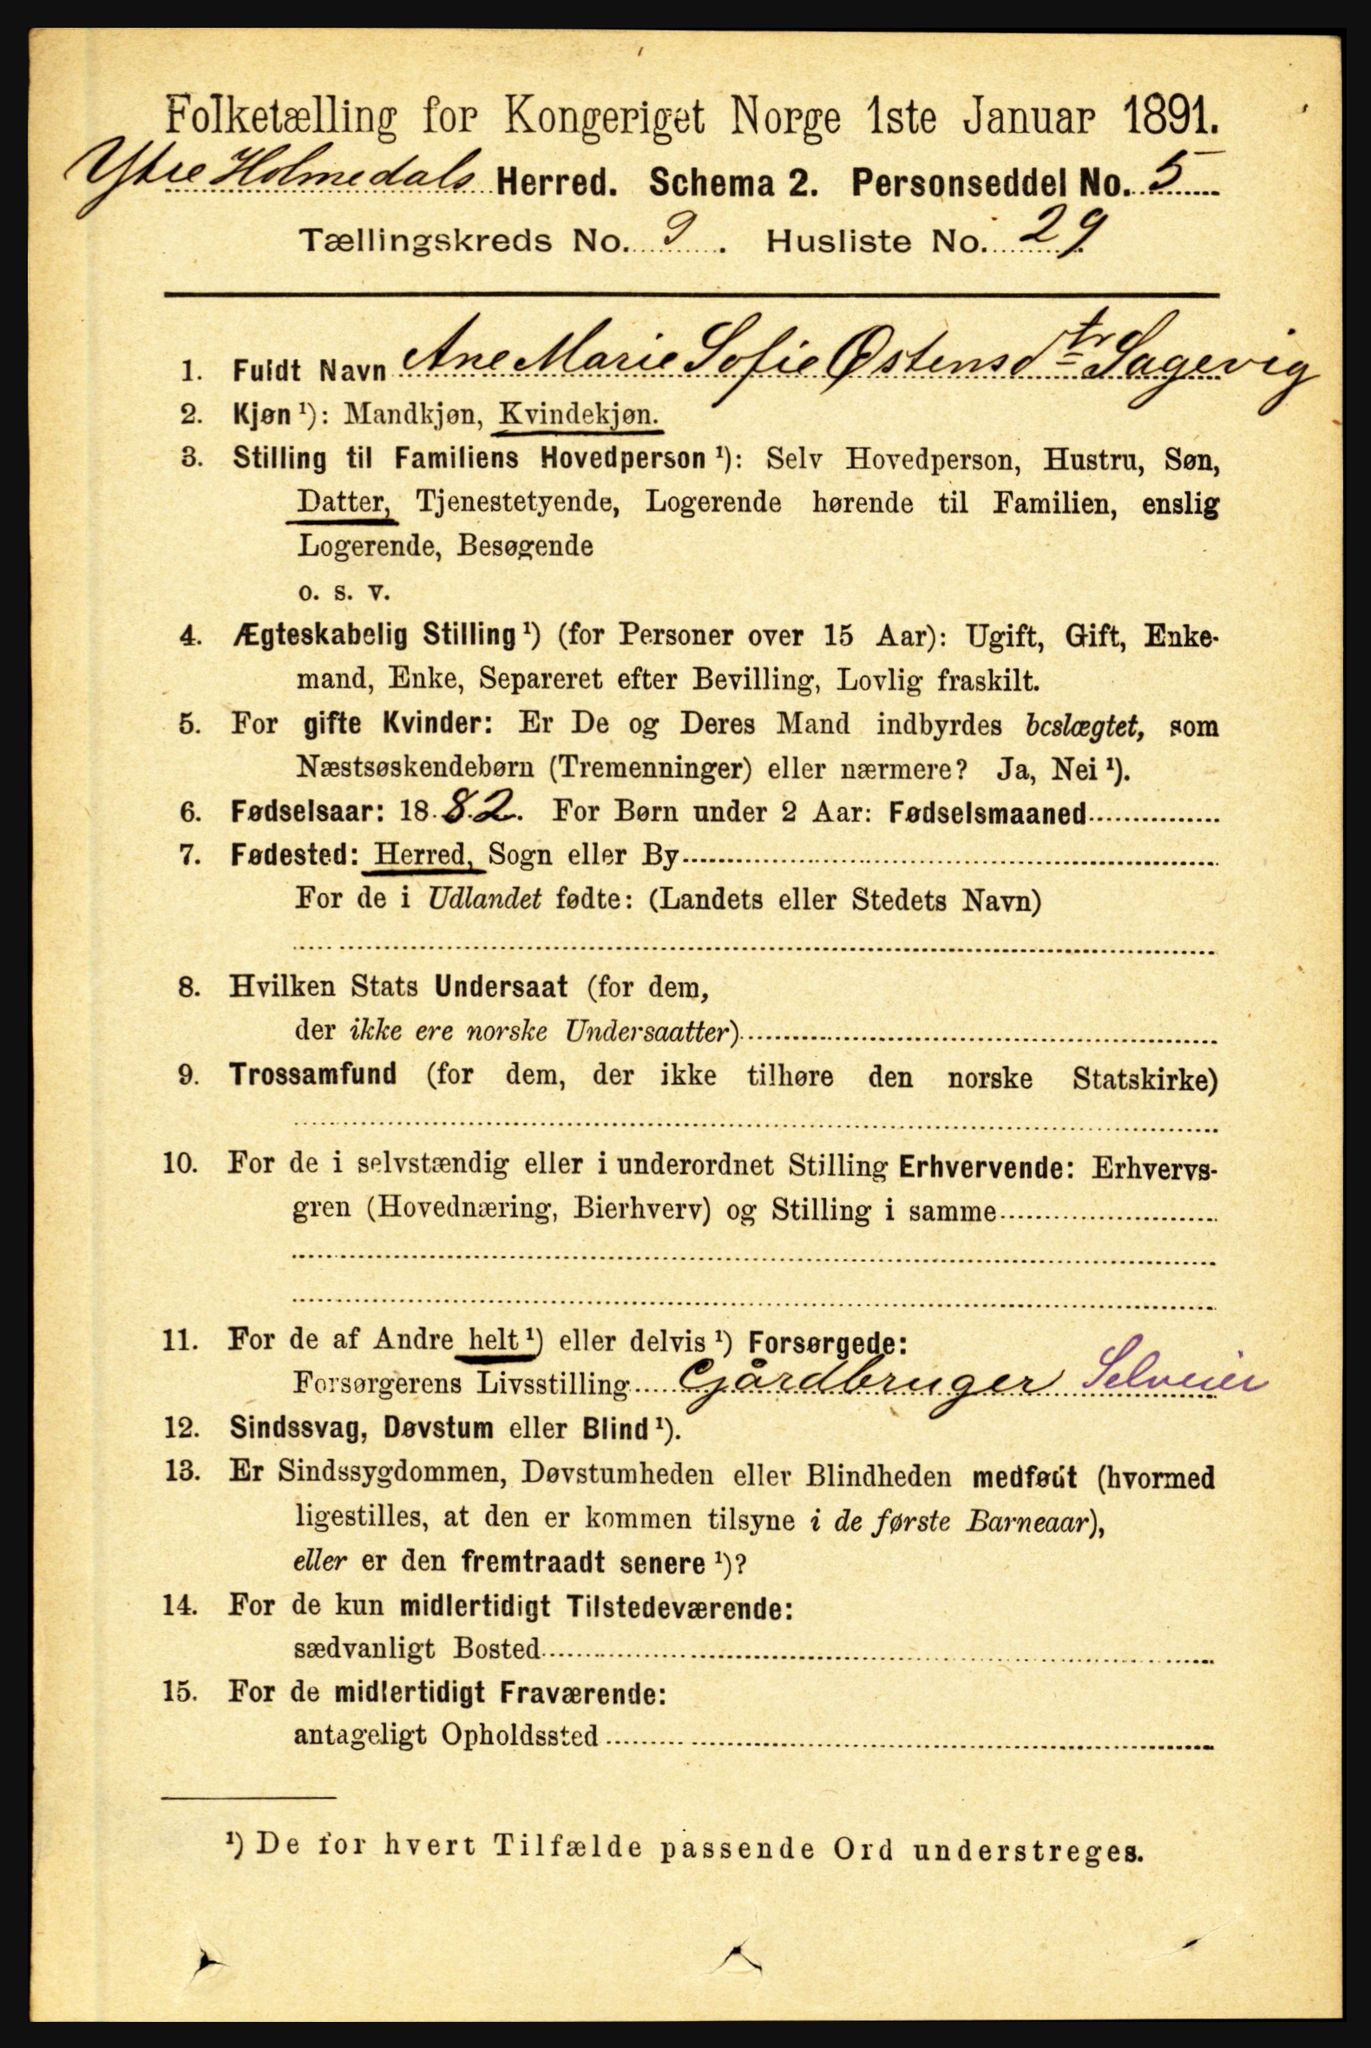 Folketælling for Kongeriget Norge 1ste Januar 1891.
Ytre Holmedals Herred. Schema 2. Personseddel No. 5
Tællingskreds No. 9. Husliste No. 29
1. Fuldt Navn Ane Marie Sofie Østensdtr Sagevig
2. Kjøn¹): Mandkjøn, Kvindekjøn.
3. Stilling til Familiens Hovedperson¹): Selv Hovedperson, Hustru, Søn,
Datter, Tjenestetyende, Logerende hørende til Familien, enslig
Logerende, Besøgende
o. s. v.
4. Ægteskabelig Stilling¹) (for Personer over 15 Aar): Ugift, Gift, Enke-
mand, Enke, Separeret efter Bevilling, Lovlig fraskilt.
5. For gifte Kvinder: Er De og Deres Mand indbyrdes beslægtet, som
Næstsøskendebørn (Tremenninger) eller nærmere? Ja, Nei¹).
6. Fødselsaar: 1882. For Børn under 2 Aar: Fødselsmaaned
7. Fødested: Herred, Sogn eller By
For de i Udlandet fødte: (Landets eller Stedets Navn)
8. Hvilken Stats Undersaat (for dem,
der ikke ere norske Undersaatter)
9. Trossamfund (for dem, der ikke tilhøre den norske Statskirke)
10. For de i selvstændig eller i underordnet Stilling Erhvervende: Erhvervs-
gren (Hovednæring, Bierhverv) og Stilling i samme
11. For de af Andre helt¹) eller delvis¹) Forsørgede:
Forsørgerens Livsstilling Gårdbruger Selveier
12. Sindssvag, Døvstum eller Blind¹).
13. Er Sindssygdommen, Døvstumheden eller Blindheden medfødt (hvormed
ligestilles, at den er kommen tilsyne i de første Barneaar),
eller er den fremtraadt senere¹)?
14. For de kun midlertidigt Tilstedeværende:
sædvanligt Bosted
15. For de midlertidigt Fraværende:
antageligt Opholdssted
¹) De for hvert Tilfælde passende Ord understreges.